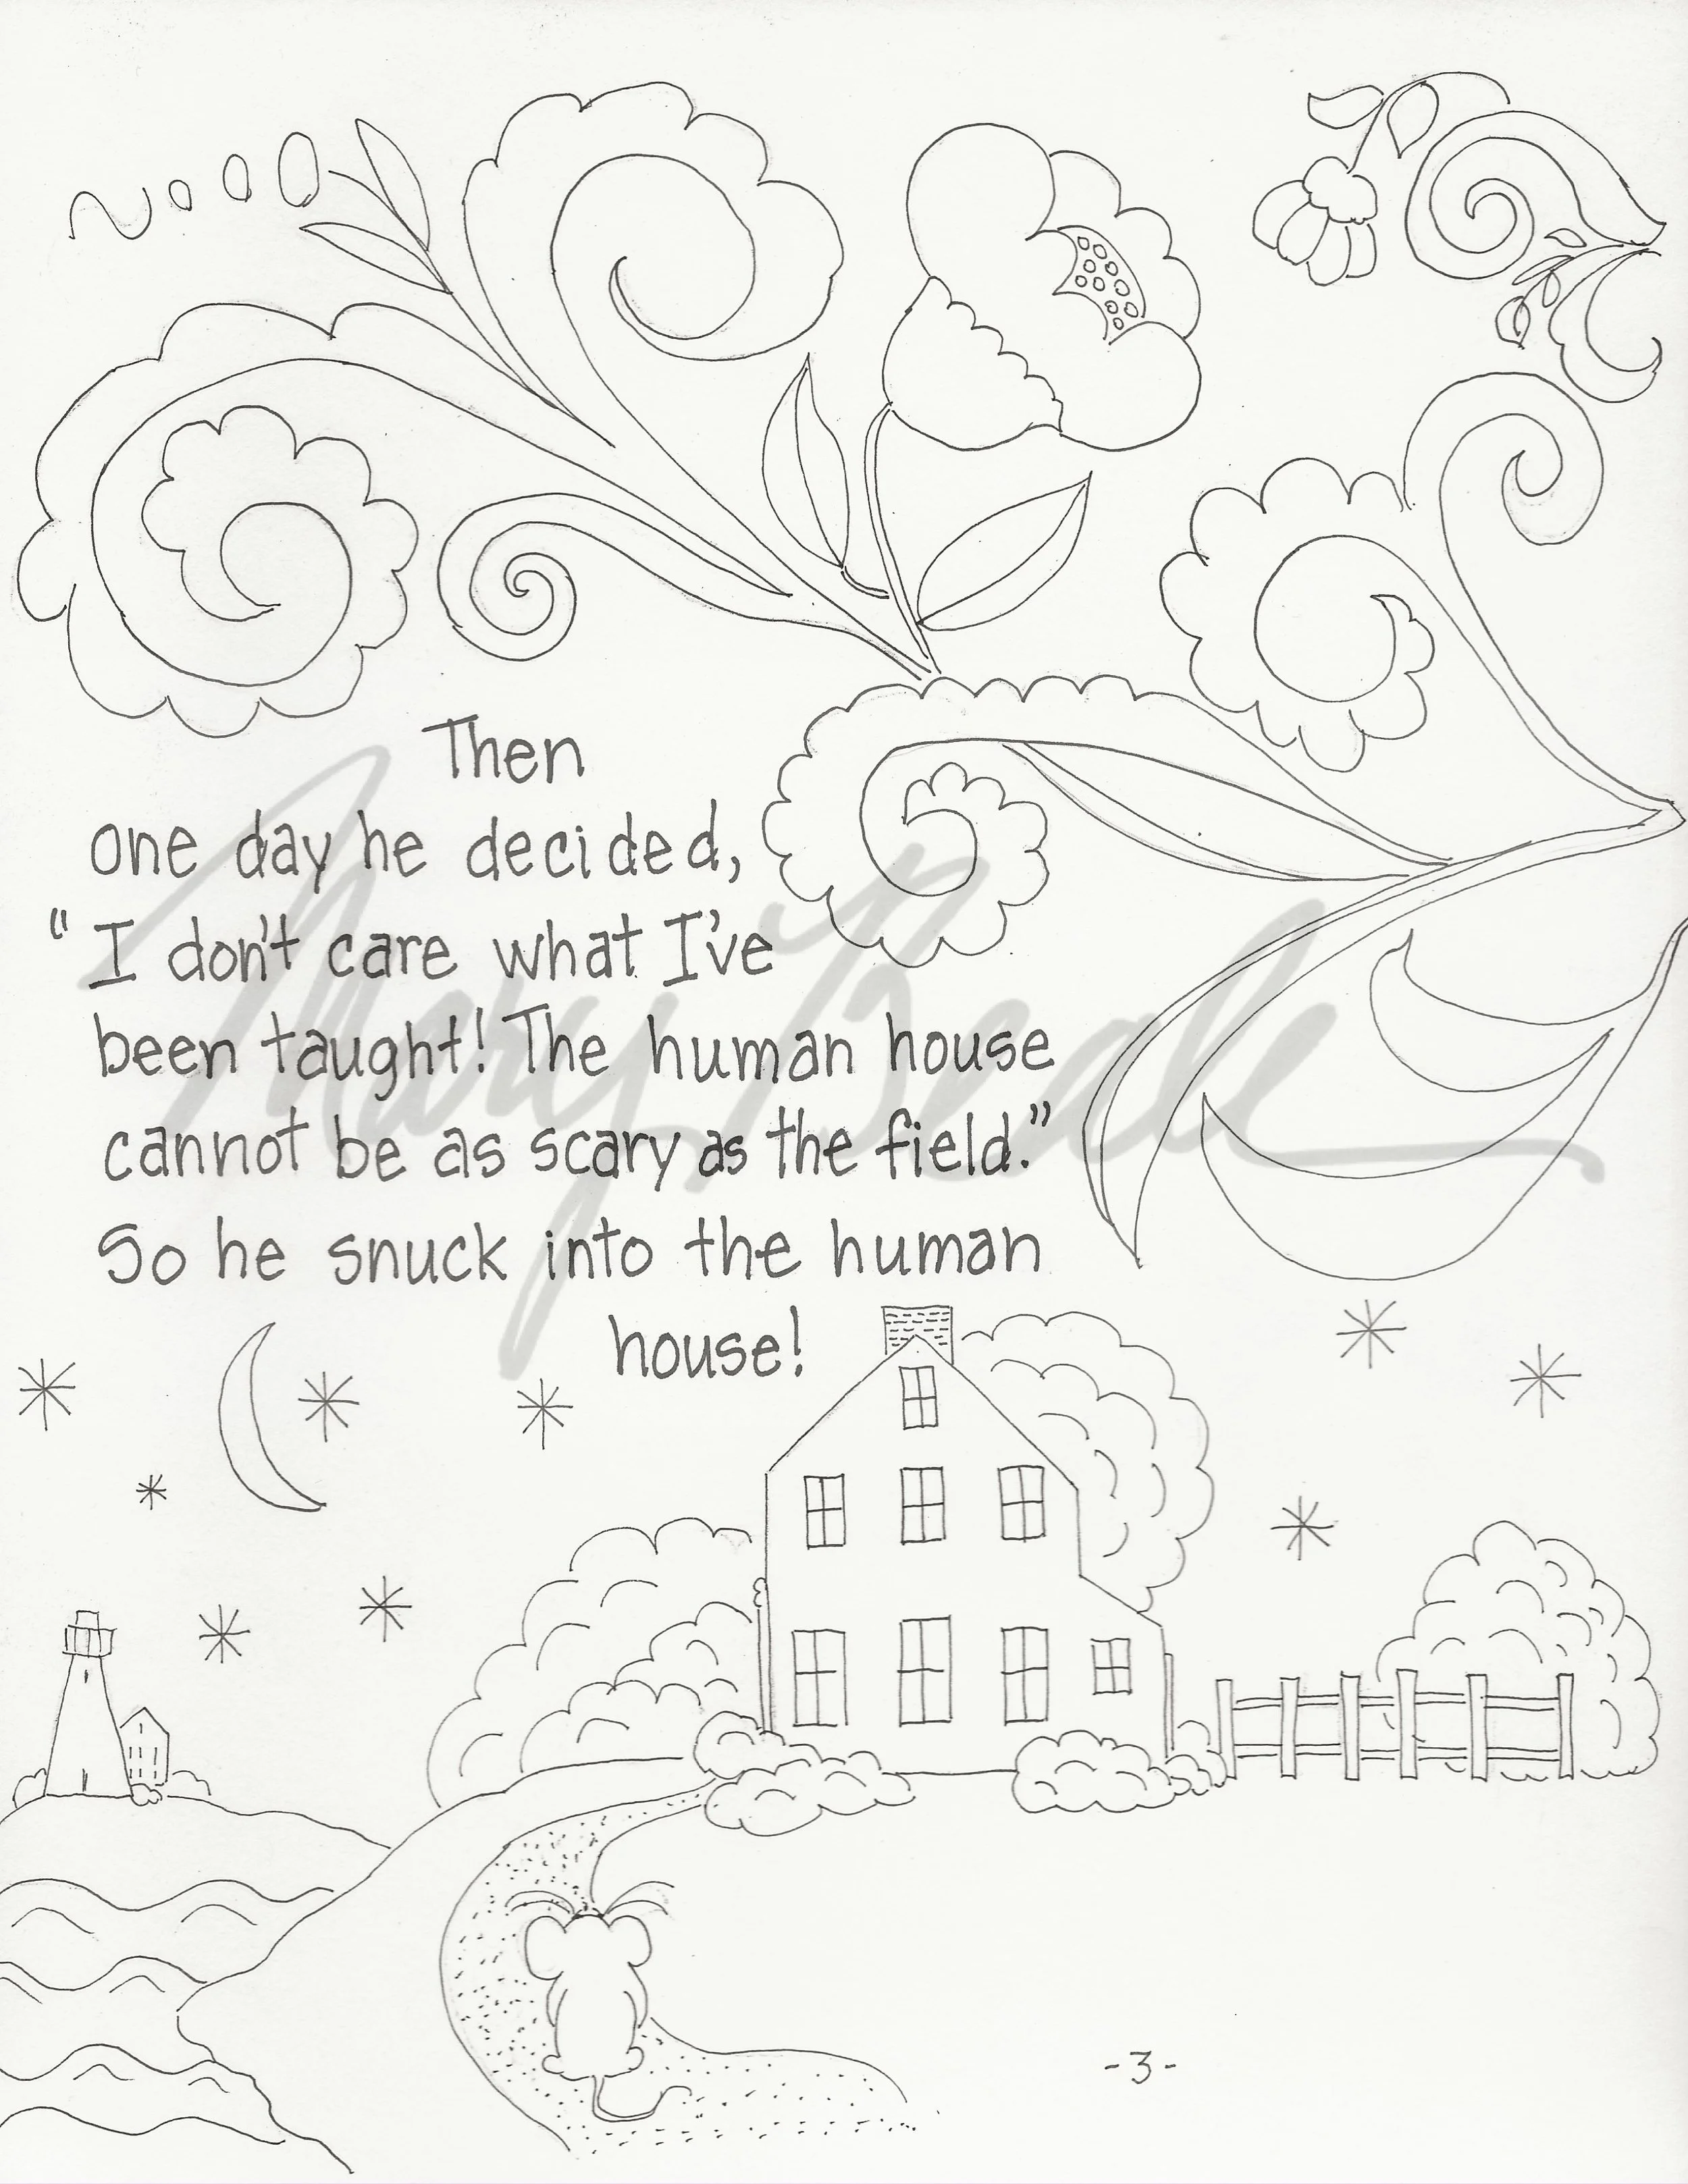 Then
one day he decided,
"I don't care what I've
been taught! The human house
cannot be as scary as the field."
So he snuck into the human
house!
Mary Beale
-3-